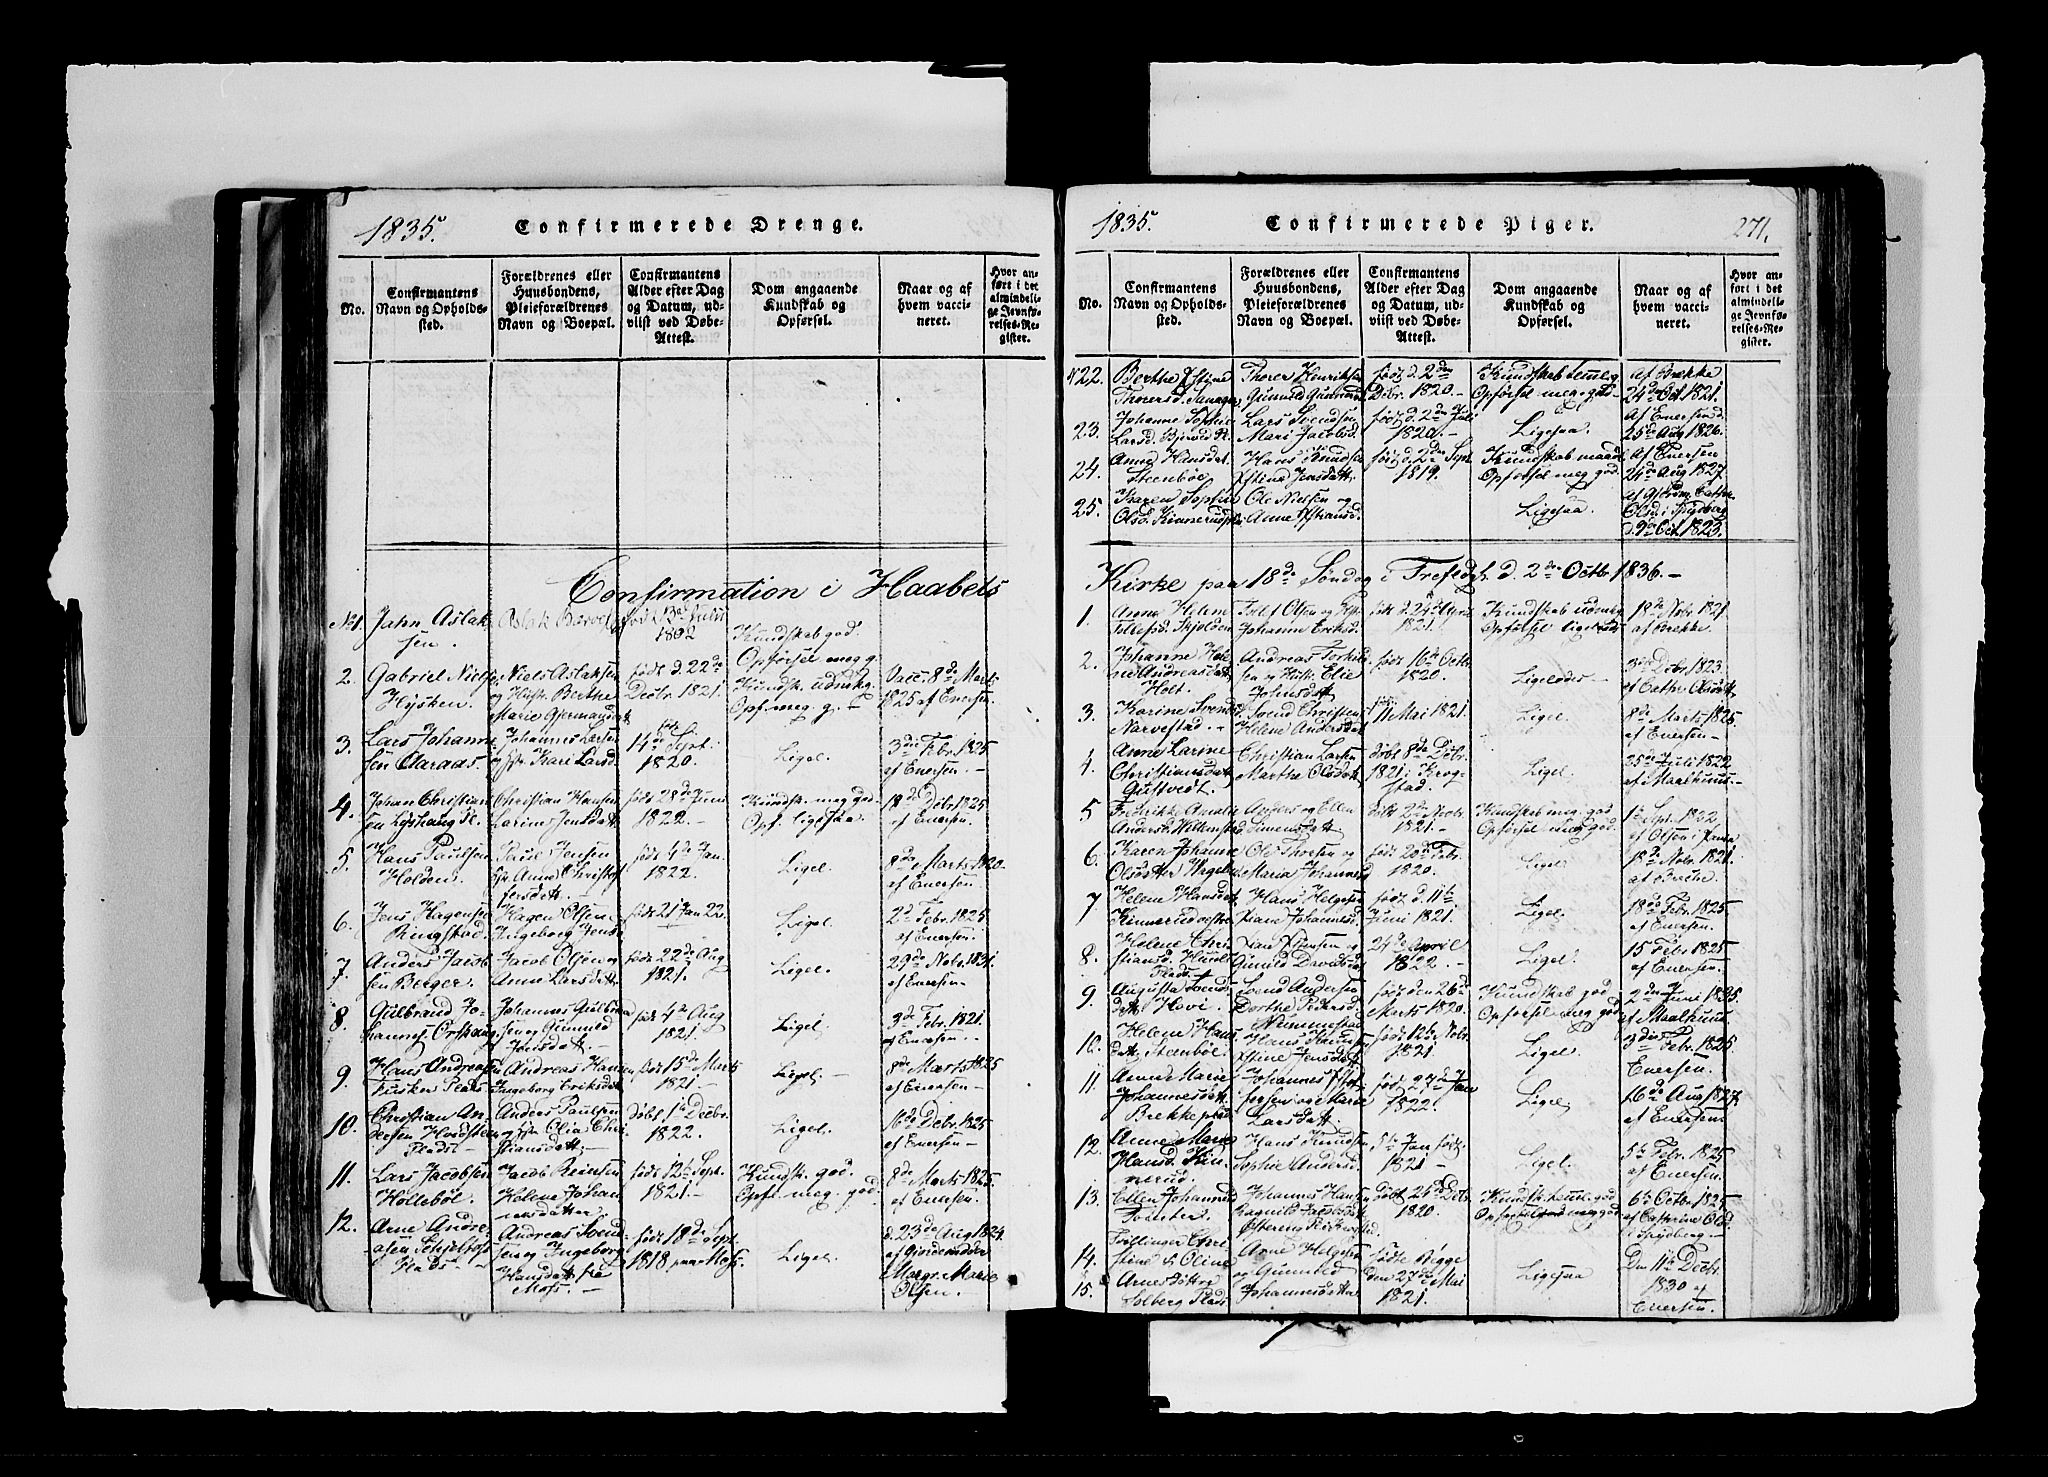 1835.
Confirmerede Drenge.
No.
Confirmantens
Navn og Opholds-
sted.
Forældrenes eller
Huusbondens,
Pleieforældrenes
Navn og Boepæl.
Confirmantens
Alder efter Dag
og Datum, ud-
viist ved Døbe-
Attest.
Dom angaaende
Kundskab og
Opførsel.
Naar og af
hvem vacci-
neret.
Hvor an-
ført i det
almindeli-
ge Jevnfø-
relses-Re-
gister.
Confirmation i Haabets
No 1. Jahn Aslak
sen.
Aslak
Kundskab god.
Opførsel meg g.
2. Gabriel Niels
Hysken.
Niels Aslaksen
og Hstr Berthe
Marie
født d. 22de
Decbr. 1821.
Kundsk. udmkg.
Opf. meg. g.
Vacc. 8de Marts
1825 af Enersen.
3. Lars Johanne
sen Aaraas.
Johannes Larsen
og Hstr Kari Larsd.
14de Sept.
1820.
Ligel.
3die Febr. 1825
af Enersen.
4. Johan Christian
sen
Christian Hansen
Jensdatt.
født 28de Juni
1822.
Kundsk. meg god
Opf. ligesaa
18de Debr. 1825
af Enersen.
5. Hans Paulsen
Holden.
Paul Jensen
Anne Christof
fersdatt.
født 4de Jan.
1822.
Ligel.
8de Marts 1820.
af Enersen.
6. Jens Hagensen
Ringstad.
Hagen Olsen
Ingeborg Jens
født 21 Jan 22.
Ligel.
2de Febr. 1825.
af Enersen.
7. Anders Jacob
sen Berger.
Jacob Olsen og
Anne Larsdatt.
født 22de Aug
1821.
Ligel.
29de Nobr. 1831.
af Enersen
8. Gulbrand Jo-
hannes.
Johannes Gulbran
sen og Gunnild
Jensdatt.
født 4de Aug
1821.
Ligel.
3de Febr. 1821.
af Enersen.
9. Hans Andreasen
Plads
Andreas Hansen
Ingeborg Eriksdatt
født 15de Marts
1821.
Ligel.
8de Marts 1825
af Enersen
10. Christian An
dersen
Plads
Anders Paulsen
og Hstr Olia Chri
stiansdatt.
døbt 1ste Decbr.
1822.
Ligel.
16de Debr. 1825
af Enersen
11. Lars Jacobsen
Hollebøl.
Jacob Reiersen
Helene Johan
nesdatter.
født 12te Sept.
1821.
Kundsk. god.
Opf. meg. god.
8de Marts 1825.
af Enersen.
12. Arne Andre
asen
Plads
Andreas Svend
sen og Ingeborg
Hansdatt fra
Moss.
født 18de Sept.
1818 paa Moss.
Ligel.
d. 23de Aug 1824.
af Giordemoder
Margr. Marie
Olsen.
1835.
Confirmerede Piger.
271.
No.
Confirmantens
Navn og Opholds-
sted.
Forældrenes eller
Huusbondens,
Pleieforældrenes
Navn og Boepæl.
Confirmantens
Alder efter Dag
og Datum, ud-
viist ved Døbe-
Attest.
Dom angaaende
Kundskab og
Opførsel.
Naar og af
hvem vacci-
neret.
Hvor an-
ført i det
almindeli-
ge Jevnfø-
relses-Re-
gister.
No 22. Berthe Xstine
Thorersd.
Thorer Henriksen
Gunnild
født d. 2den
Debr. 1820.
Kundskab temeg
Opførsel meg god
af Brekke
24de Oct 1821.
23. Johanne Sophie
Larsd.
Lars Svendsen
Mari Jacobsd.
født d. 2den Juli
1820.
Ligesaa.
Af Enersen d.
25de Aug 1826.
24. Anne Hansdat.
Steenbøl
Hans Knudsen
Xstine Jensdatt.
født d. 2den Sept
1819.
Kundskab maad.
Opførsel meg god.
Af Enersen
21de Aug 1827.
25. Karen Sophie
Olsd.
Ole Nielsen og
Anne
Ligesaa.
Olsd. i Spydberg
d. 9de Oct 1823.
Kirke paa 18de Søndag i Trefoldigh. d. 2den Octbr. 1836.
1. Anne Helene
Tollefsd. Skjolden
Tollef Olsen og Hstr
Johanne Eriksd.
født d. 24de April
1821.
Kundskab udmeg
Opførsel
19de Nobr. 1821.
af Brekke.
2. Johanne Hele
ne Andreasdatt
Holt.
Andreas
sen og Hust. Elie
Johnsdatt
født 16de Octbr.
1820.
Ligeledes
3de Debr. 1823
af Cathr. Olsdatt
3. Karine Svends
Narvestad.
Svend Christen
Helene Andersdat
født 11 Mai 1821.
Ligel.
8de Marts 1825
af Enersen
4. Anne Larine
Christiansdatt
Christian Larsen
Marthe Olsdatt
døbt 8de Debr.
1821 i Krog-
stad.
Ligel.
25de Juli 1822
af Maalhuus.
5 Fredrikke Amalie
Andersd.
Anders og Ellen
Simensdatt
døbt 2de Nobr.
1821.
Kundskab meg. god
Opførsel meg god.
1ste Sept. 1832.
af Olsen i
6. Karen Johanne
Olsdatter
Ole Thorsen og
Maria Johannesd
født 20de Febr.
1820.
Ligel
18de Nobr. 1821.
af Brekke.
7 Helene Hansdatt
Hans Helgesen
Johannesd.
født d. 11te
Juni 1821.
Ligel.
18de Febr. 1825.
af Enersen.
8. Helene Chri
stiansd.
Plads
Gunild Davidsdat
24de April
1822.
Ligel.
15 Febr. 1825
af Enersen.
9. Augusta Svends
datt. Hovi.
Svend Andersen
Dorthe Pedersd.
født den 26de
Marts 1820.
Kundskab god
Opførsel meg god
2den Juni 1835.
af Maalhuus
10. Helene Hans
datt. Steenbøl.
Hans Knudsen
Xstine Jensdat
født 12te Nobr.
1821.
Ligel.
3die Febr. 1825.
Enersen.
11 Anne Marie
Johannesdatt.
Brekke plad
Johannes
fersen og Marie
Larsdatt.
født 27de Jan
1822.
Ligel.
16de Aug 1827.
af Enersen.
12. Anne Marie
Hansd. Kin
nerud.
Hans Knudsen
Sophie Andersd.
5te Jan født
1821
Ligel.
5te Febr. 1825.
af Enersen.
13. Ellen Johannesd
Tomter.
Johannes Hansen
Ragnild Jacobsdatt
døbt 26de Debr.
1820.
Kundsk. temm. god
Opførsel meg god
6te Octbr. 1825
af Cathrine Olsd.
i Spydberg
14. Tvillinger
stine & Oline
15. Arnes Døttre
Solberg Plads
Arne Helgesen
og Gunnild
Johannesdatter
fødte Begge
den 27de Mai
1821.
Ligesaa
Den 11te Decbr.
1830 af
Enersen.